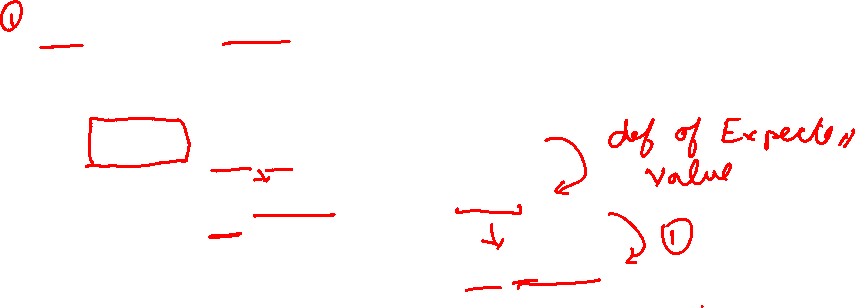 ①
def of Expecte
value
①